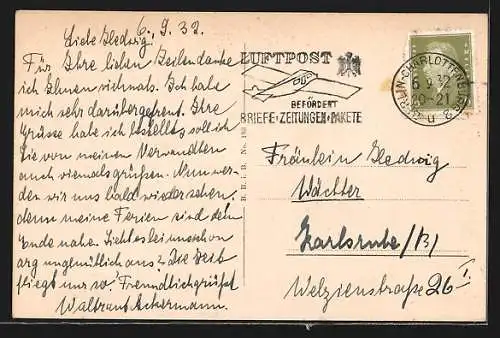 6. 9. 32.
Liebe Hedwig!
Für Ihre lieben Zeilen danke
ich Ihnen vielmals. Ich habe
mich sehr darüber gefreut. Ihre
Grüsse habe ich bestellt, soll ich
Sie von meinen Verwandten
auch vielmals grüßen. Nun wer-
den wir uns bald wiedersehen,
denn meine Ferien sind dem
Ende nahe. Sieht es bei uns schon
arg ungemütlich aus? Die Zeit
fliegt nur so. Freundlichgrüßt
Waltraut Ackermann.
LUFTPOST
BEFÖRDERT
BRIEFE·ZEITUNGEN·PAKETE
BERLIN-CHARLOTTENBURG
6.9.32
20-21
u 2
Fräulein Hedwig
Wächter
Karlsruhe /B/
Welzienstraße 26 I.